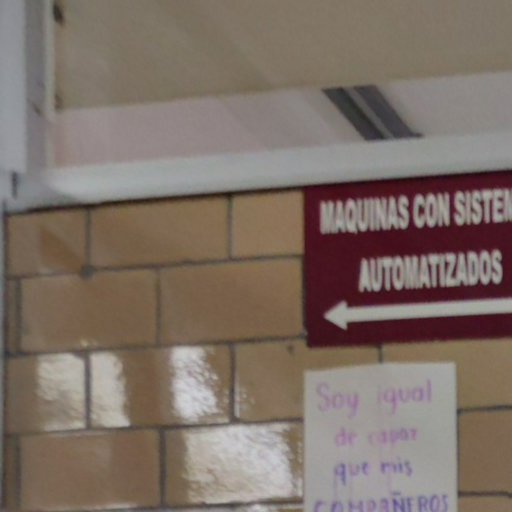 MAQUINAS CON SISTEM
AUTOMATIZADOS
Soy igual
de capaz
que mis
COMPAÑEROS